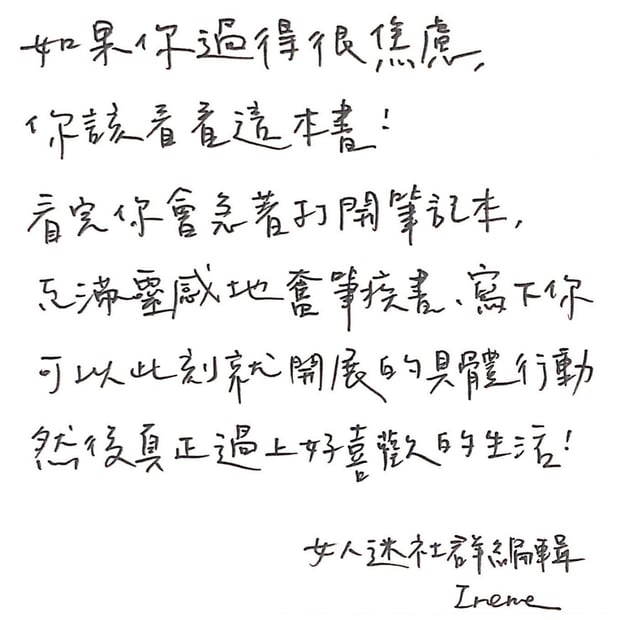 如果你過得很焦慮,
你該看看這本書!
看完你會急著打開筆記本,
充滿靈感地奮筆疾書、寫下你
可以此刻就開展的具體行動
然後真正過上好喜歡的生活!
女人迷社群編輯
Irene